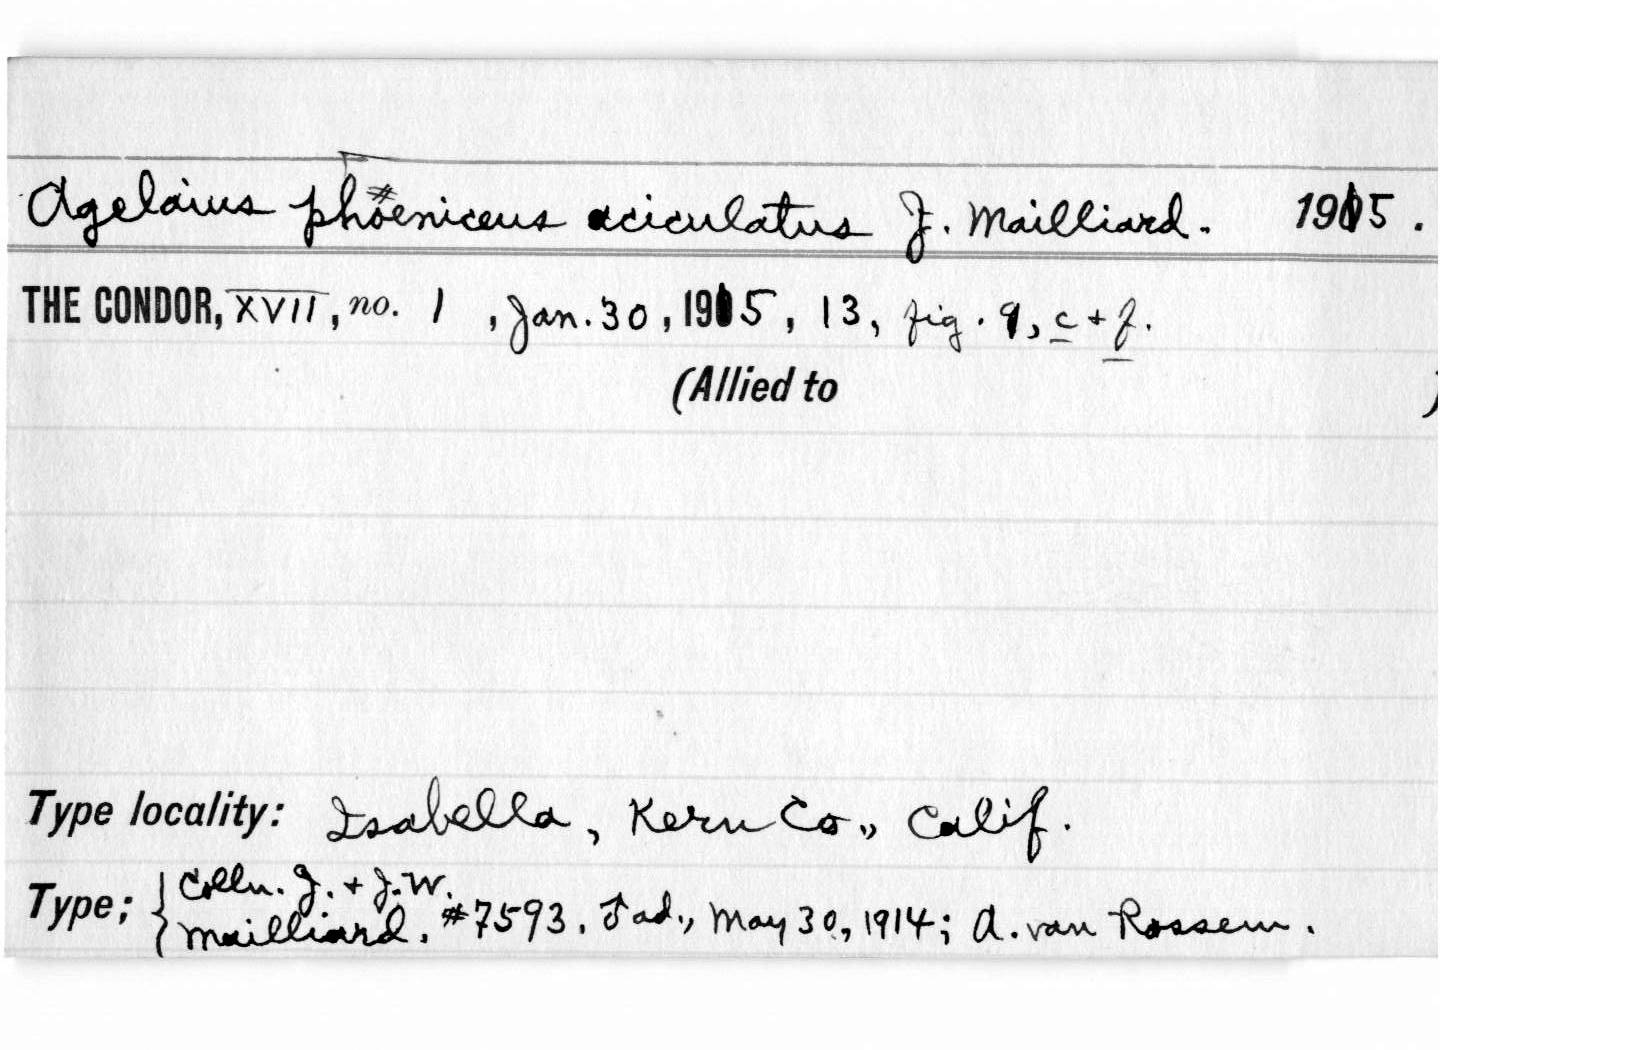 Agelaius phoeniceus aciculatus J. Mailliard. 1915.
THE CONDOR, XVII, no. 1, Jan. 30, 1915, 13, fig. 9, c + f.
(Allied to )
Type locality: Isabella, Kern Co., Calif.
Type; { Colln. J. + J.W.
Mailliard. #7593. ♂ ad., May 30, 1914; A. van Rossem.